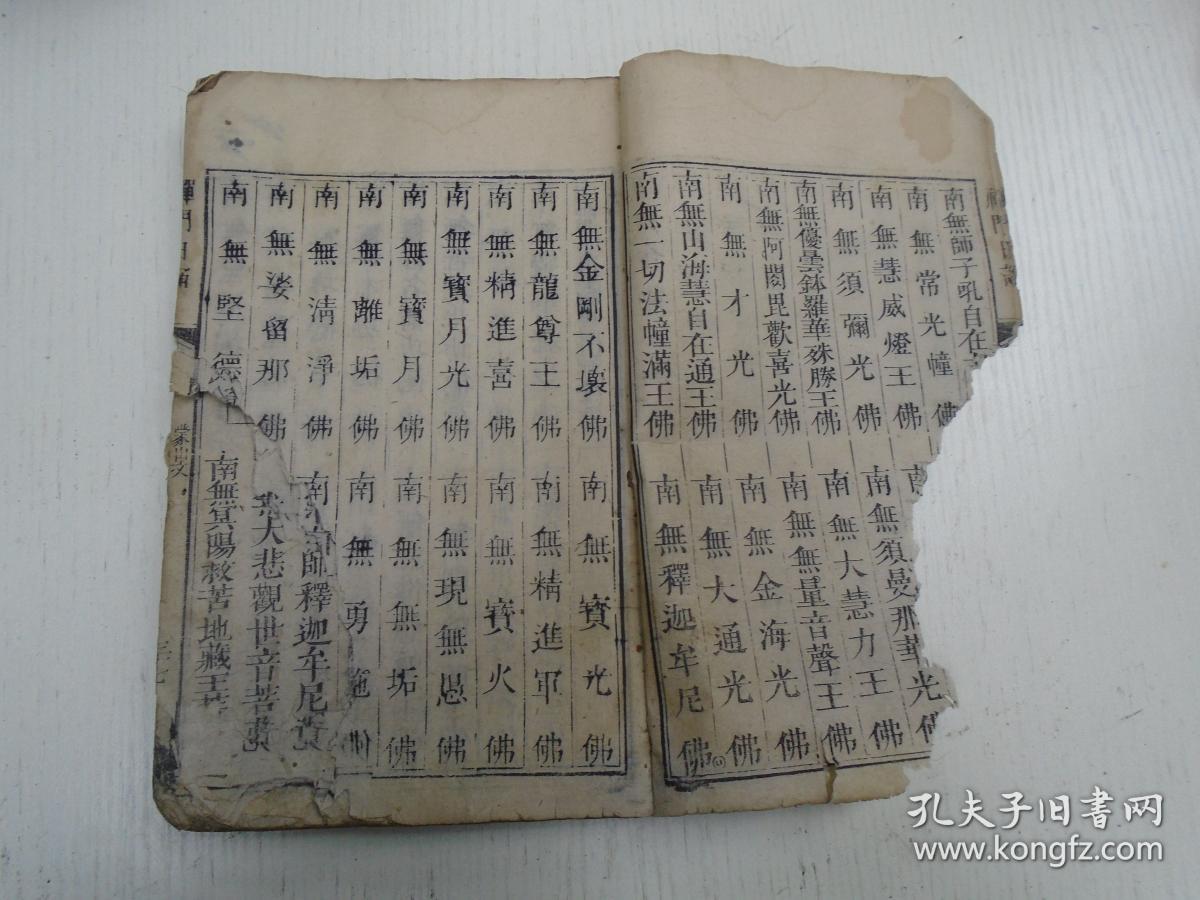 南無師子吼自在
南無常光幢佛
南無慧威燈王佛
南無須彌光佛
南無優曇鉢羅華殊勝王佛
南無阿閦毘歡喜光佛
南無才光佛
南無山海慧自在通王佛
南無一切法幢滿王佛
南無須曼那華光佛
南無大慧力王佛
南無無量音聲王佛
南無金海光佛
南無大通光佛
南無釋迦牟尼佛
南無金剛不壞佛
南無龍尊王佛
南無精進喜佛
南無寶月光佛
南無寶月佛
南無離垢佛
南無淸淨佛
南無娑留那佛
南無堅德
南無寶光佛
南無精進軍佛
南無寶火佛
南無現無愚佛
南無無垢佛
南無勇施
南 師釋迦牟尼
大悲觀世音菩
南無冥陽救苦地藏王菩
禪門日誦
孔夫子旧书网
www.kongfz.com